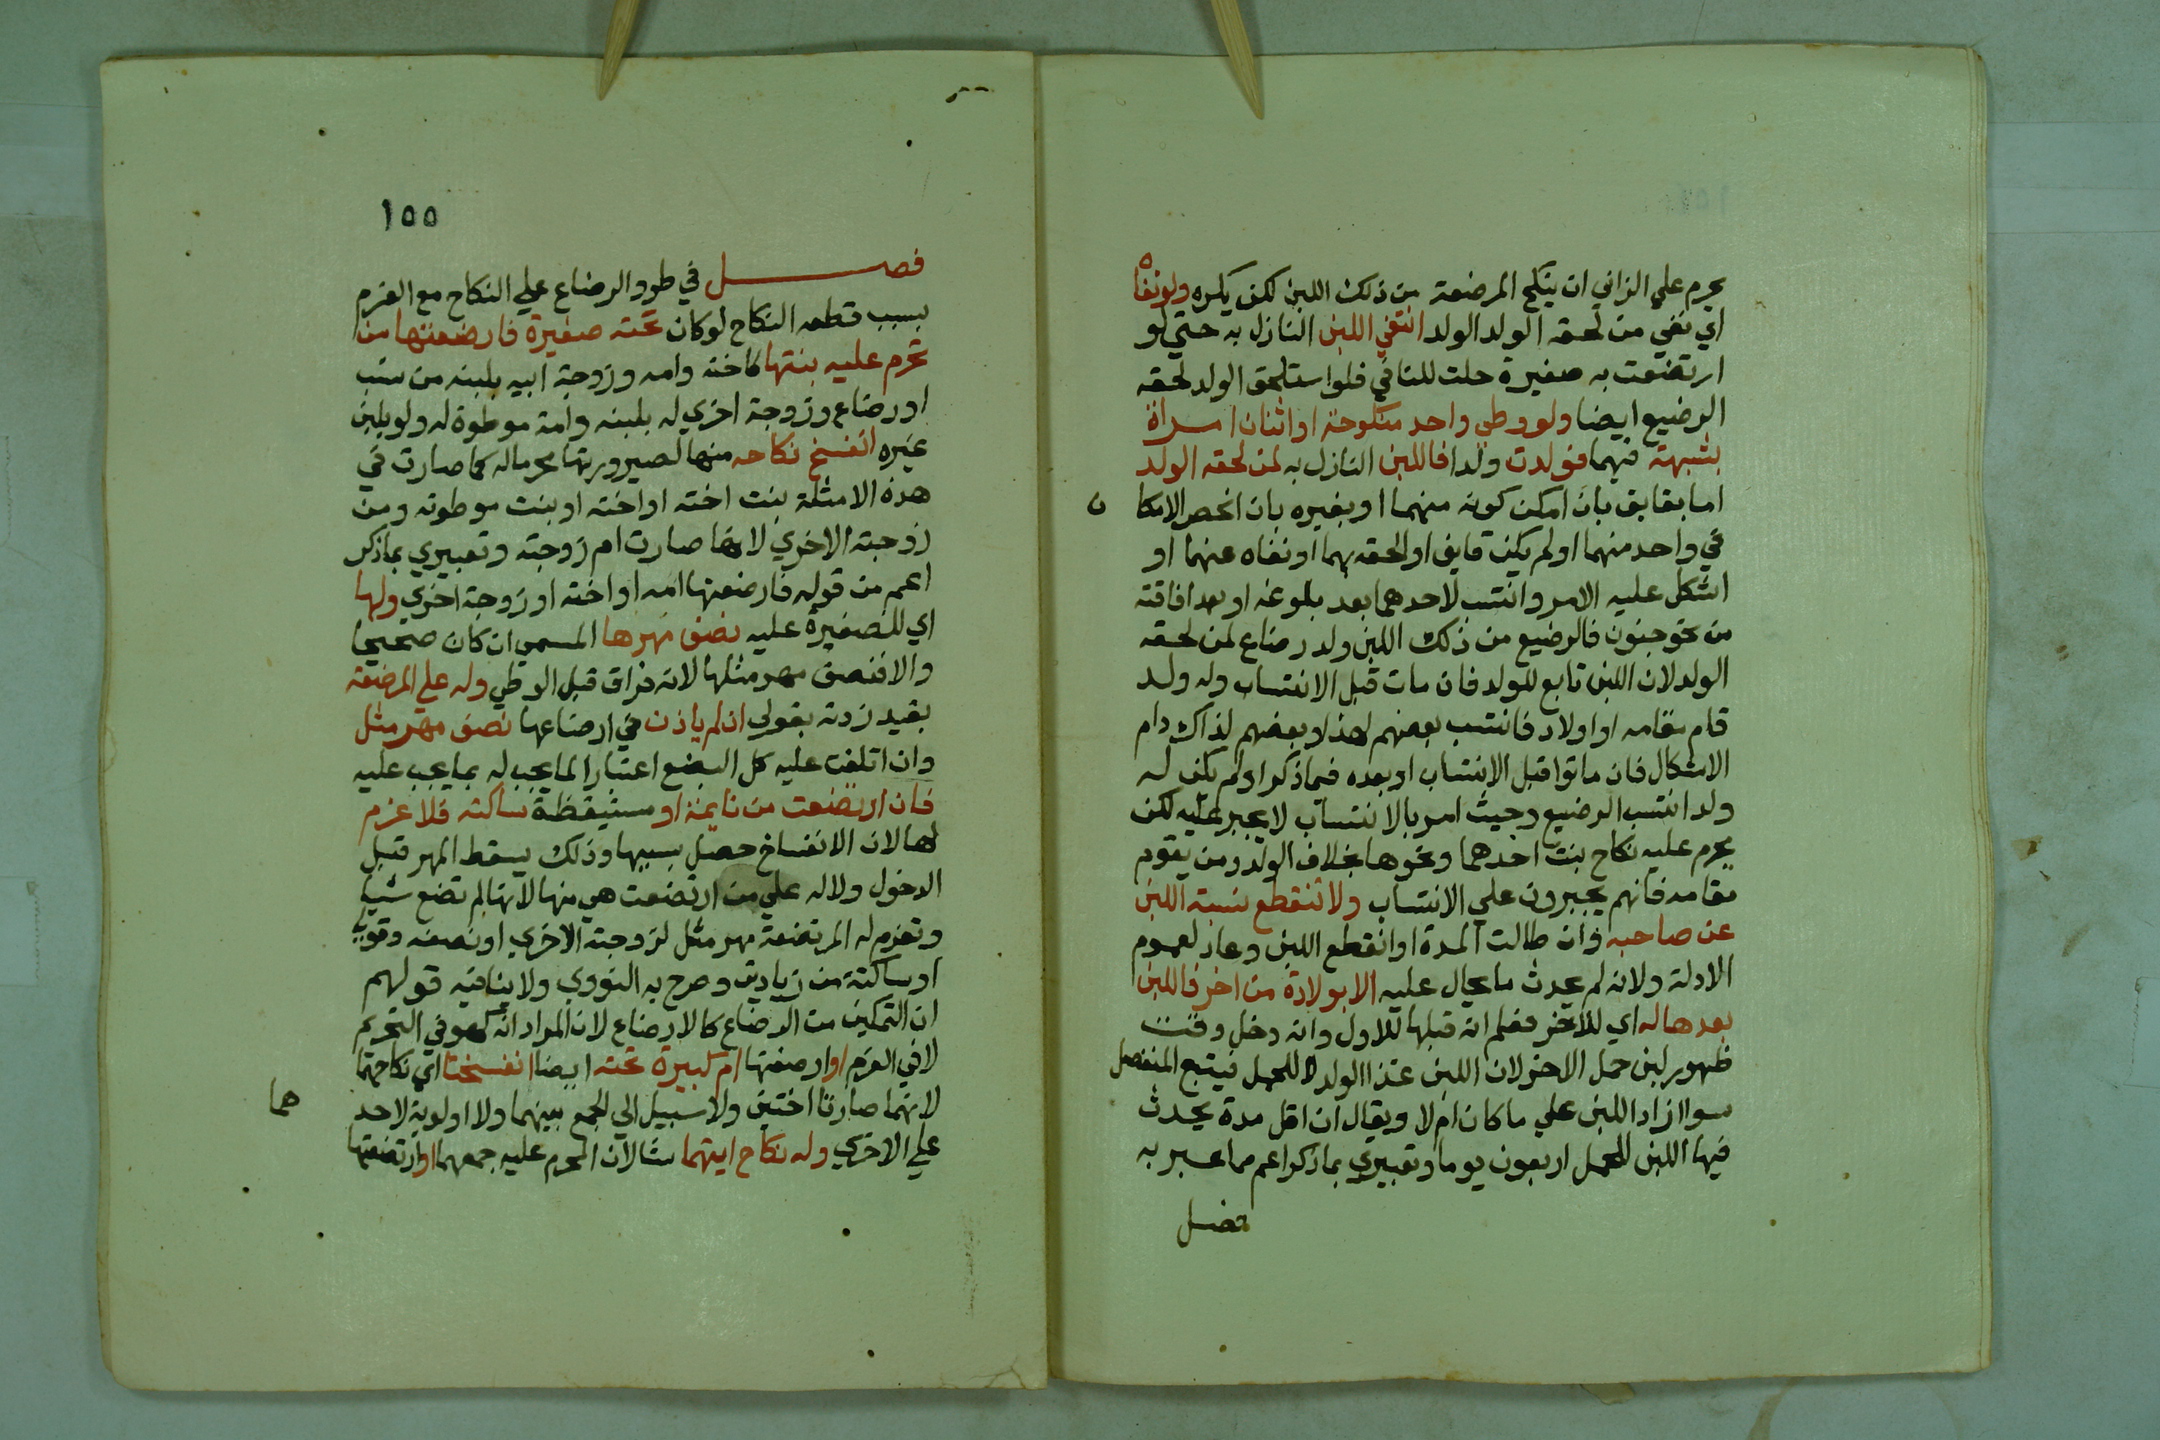 يحرم علي الزاني ان ينكح المرضعة من ذلك اللبن لكن يكره ولو نفاه
اي نفي من لحقه الولد الولد انتفي اللبن النازل به حتي لو
ارتضعت به صغيرة حلت للنافي فلو استلحق الولد لحقه
الرضيع ايضا ولو وطي واحد منكوحة او اثنان امراة
بشبهة فيهما فولدت ولدا فاللبن النازل به لمن لحقه الولد
اما بقايق بان امكن كونه منهما او بغيره بان انحصر الامكا
ن
في واحد منهما او لم يكن قايف او الحقه بهما او نفاه عنهما او
اشكل عليه الامر وانتسب لاحدهما بعد بلوغه او بعد افاقته
من نحو جنون فالرضيع من ذلك اللبن ولد رضاع لمن لحقه
الولد لان اللبن تابع للولد فان مات قبل الانتساب وله ولد
قام مقامه او اولاد فانتسب بعضهم لهذا وبعضهم لذاك دام
الاشكال فان ماتوا قبل الانتساب او بعده فيما ذكر او لم يكن له
ولد انتسب الرضيع وحيث امر بالانتساب لا يجبر عليه لكن
يحرم عليه نكاح بنت احدهما ونحوها بخلاف الولد ومن يقوم
مقامه فانهم يجبرون علي الانتساب ولا تنقطع نسبة اللبن
عن صاحبه وان طالت المدة او انقطع اللبن وعاد لعموم
الادلة ولانه لم يحدث ما يحال عليه الا بولادة من اخر فاللبن
بعدها له اي للاخر فعلم انه قبلها للاول وانه دخل وقت
ظهور لبن حمل الاخر لان اللبن غذا الولد لا للحمل فيتبع المنفصل
سوا ازاد اللبن علي ما كان ام لا ويقال ان اقل مدة يحدث
فيها اللبن للحمل اربعون يوما وتعبيري بما ذكر اعم مما عبر به
فصل
١٥٥
فصل في طرو الرضاع علي النكاح مع الغرم
بسبب قطعه النكاح لو كان تحته صغيرة فارضعتها من
تحرم عليه بنتها كاخته وامه وزوجة ابيه بلبنه من نسب
او رضاع وزوجة اخري له بلبنه وامة موطوة له ولو بلبن
غيره انفسخ نكاحه منها لصيرورتها محرما له كما صارت في
هذه الامثلة بنت اخته او اخته او بنت موطوته ومن
زوجته الاخري لانها صارت ام زوجته وتعبيري بما ذكر
اعم من قوله فارضعتها امه او اخته او زوجة اخري ولها
اي للصغيرة عليه نصف مهرها المسمي ان كان صحيحا
والا فنصف مهر مثلها لانه فراق قبل الوطي وله علي المرضعة
بقيد زدته بقولي ان لم ياذن في ارضاعها نصف مهر مثل
وان اتلفت عليه كل البضع اعتبارا لما يجب له بما يجب عليه
فان ارتضعت من نايمة او مستيقظة ساكتة فلا غرم
لها لان الانفساخ حصل بسببها وذلك يسقط المهر قبل
الدخول ولا له علي من ارتضعت هي منها لانها لم تضع شيا
وتغرم له المرتضعة مهر مثل لزوجته الاخري او نصفه وقولي
او ساكتة من زيادتي وصرح به النووي ولا ينافيه قولهم
ان التمكين من الرضاع كالارضاع لان المراد انه كهو في التحريم
لا في الغرم او ارضعتها ام كبيرة تحته ايضا انفسختا اي نكاحهما
لانهما صارتا اختين ولا سبيل الي الجمع بينهما ولا اولوية لاحد
هما
علي الاخري وله نكاح ايتهما شا لان المحرم عليه جمعهما او ارتضعتها